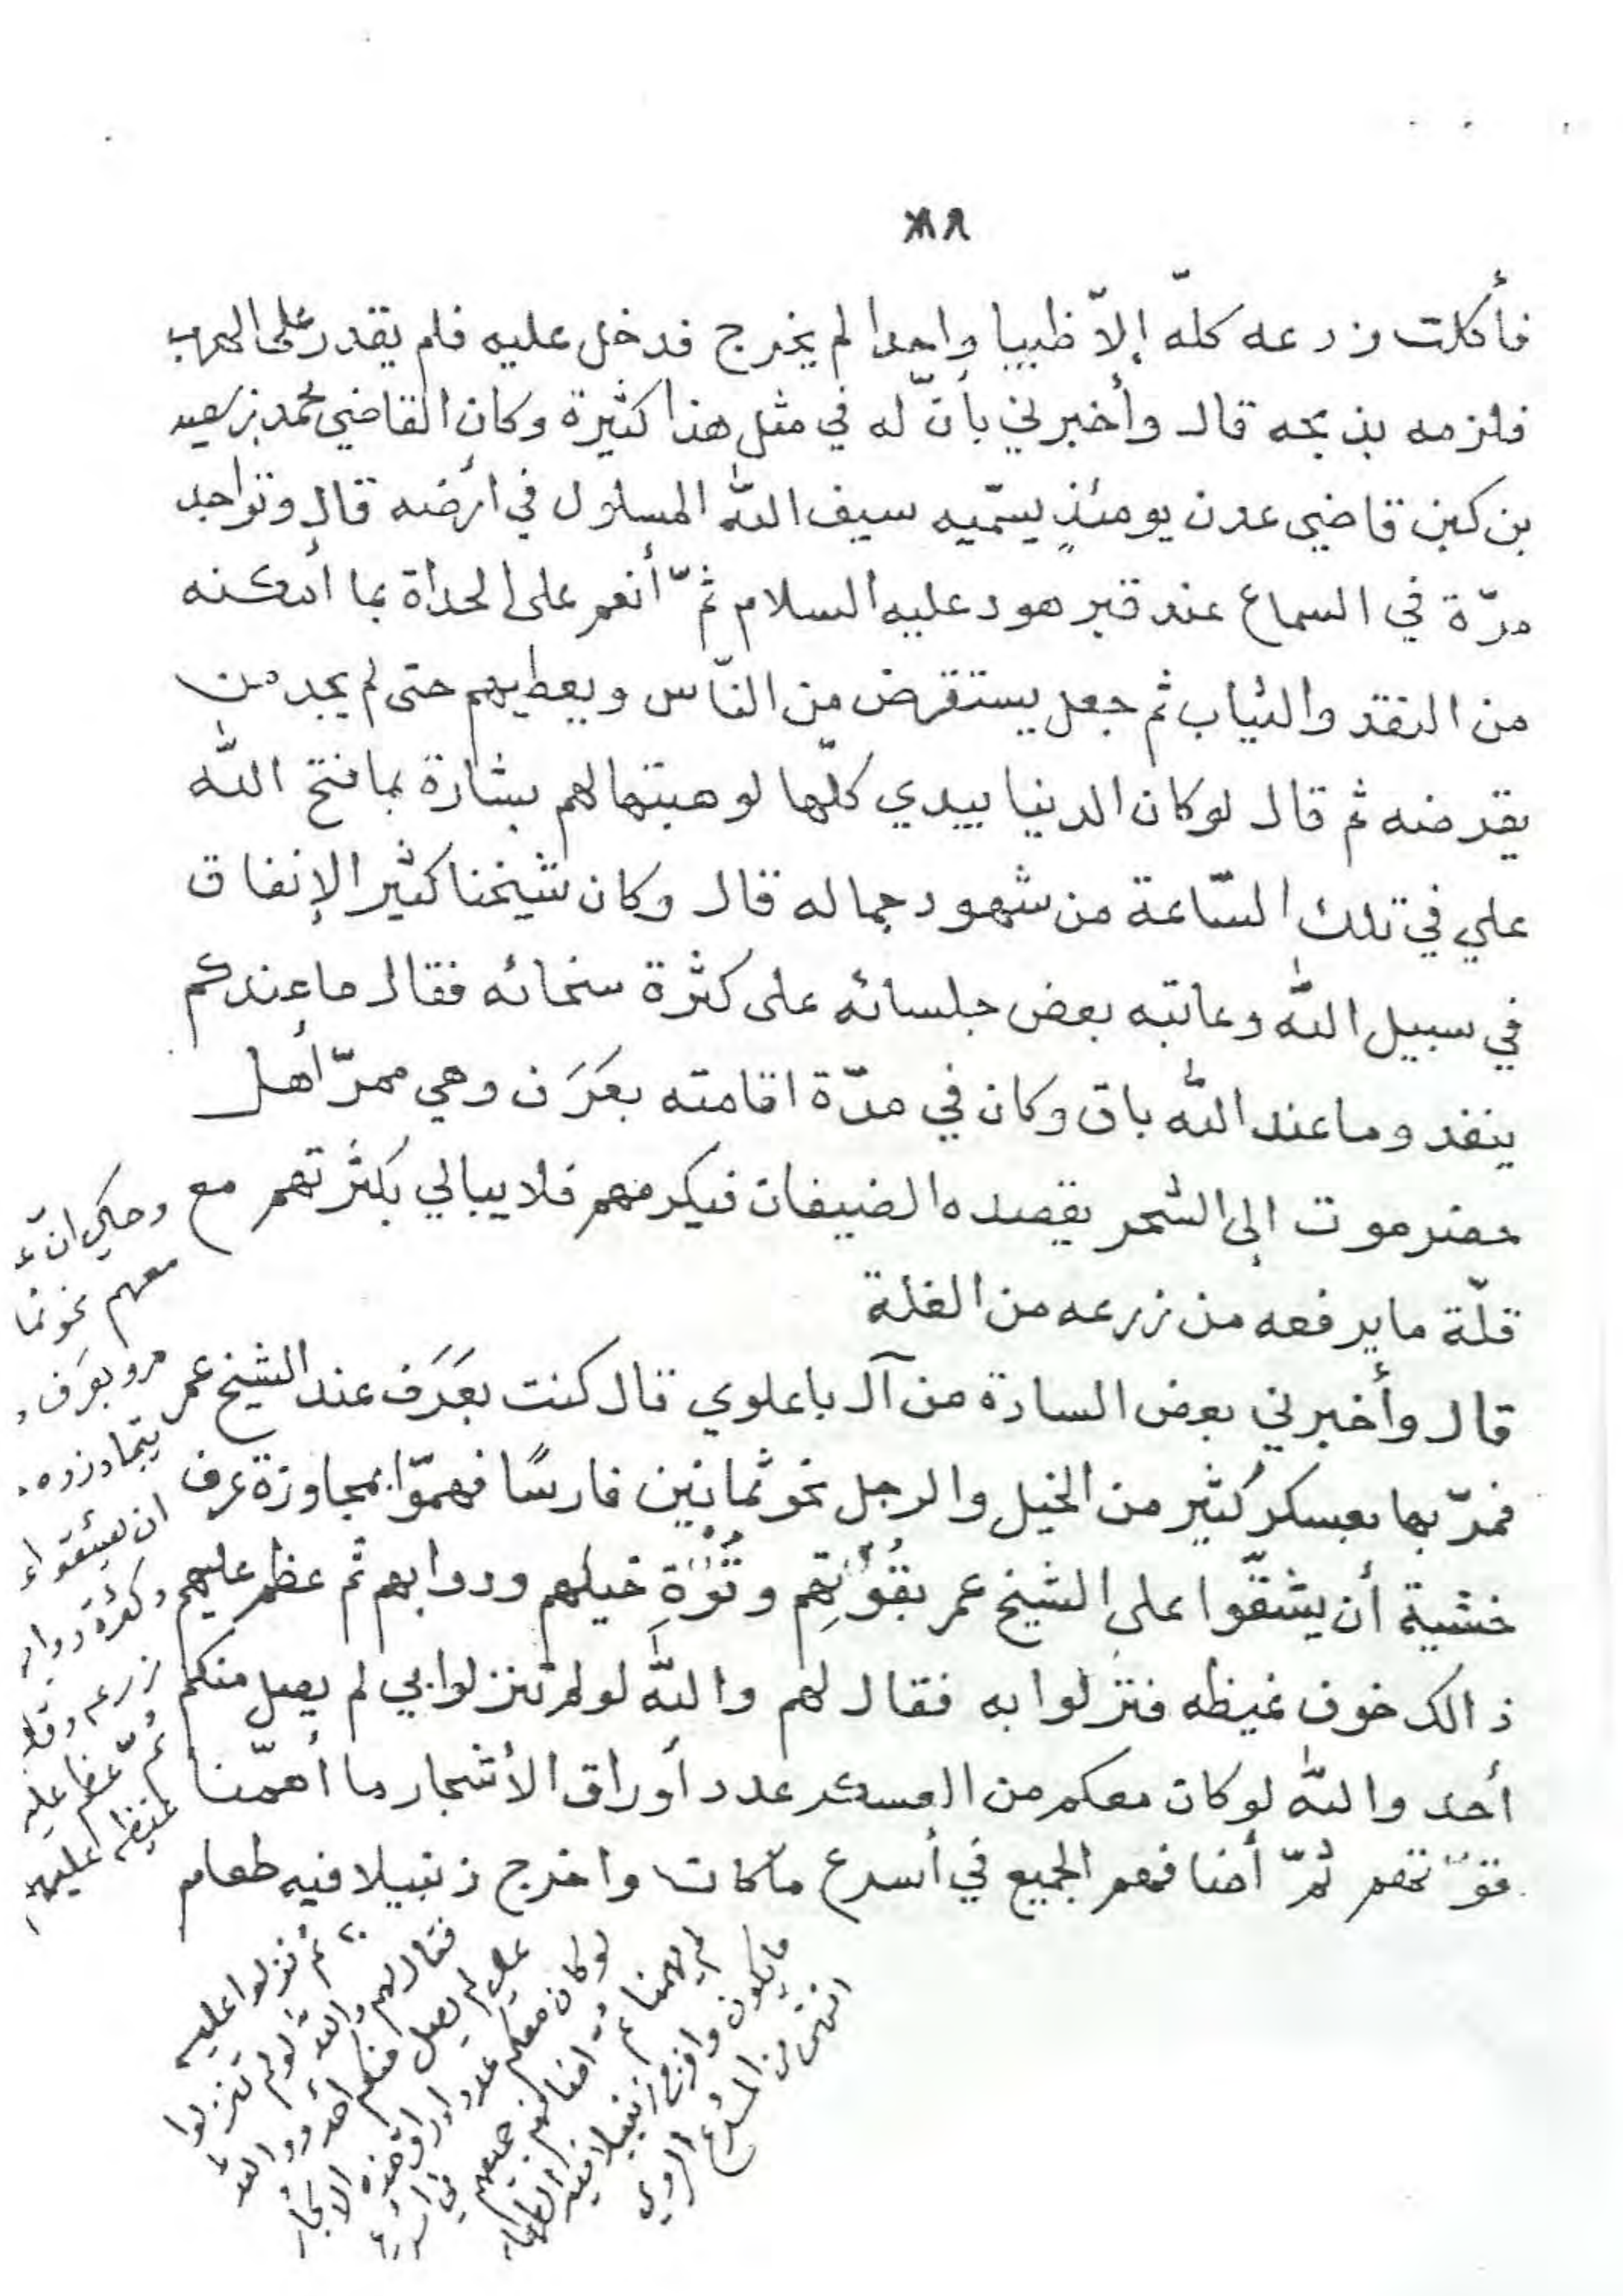 ٨٨
فأكلت زرعه كلّه إلاّ ظبيا واحدا لم يخرج فدخل عليه فلم يقدر على الهرب
فلزمه بذبحه قال وأخبرني بأنّ له في مثل هذا كثيرة وكان القاضي محمد بن سعيد
بن كبن قاضي عدن يومئذٍ يسمّيه سيف اللّه المسلول في أرضه قال وتواجد
مرّة في السماع عند قبر هود عليه السلام ثمّ أنعم على الحداة بما أمكنه
من النقد والثياب ثم جعل يستقرض من النّاس ويعطيهم حتى لم يجد من
يقرضه ثم قال لو كان الدنيا بيدي كلّها لوهبتها لهم بشارة بما فتح اللّه
علي في تلك السّاعة من شهود جماله قال وكان شيخنا كثير الإنفاق
في سبيل اللّه وعاتبه بعض جلسائه على كثرة سخائه فقال ما عندكم
ينفد وما عند اللّه باق وكان في مدّة اقامته بعَرَف وهي ممرّ أهل
حضرموت إلى الشحر يقصده الضيفان فيكرمهم فلا يبالي بكثرتهم مع
قلّة ما يرفعه من زرعه من الغلة
قال وأخبرني بعض السادة من آل باعلوي قال كنت بعَرَف عند الشيخ عمر
فمرّ بها بعسكر كثير من الخيل والرجل نحو ثمانين فارسًا فهمّوا بمجاوزة عرف
خشية أن يشقّوا على الشيخ عمر بقُوْتِهم وقُوْةِ خيلهم ودوابهم ثم عظم عليهم
ذالك خوف غيظه فنزلوا به فقال لهم واللّه لو لم تنزلوا بي لم يصل منكم
أحد واللّه لو كان معكم من العسكر عدد أوراق الأشجار ما أهمّنا
قوّتهم ثمّ أضافهم الجميع في أسرع ما كان واخرج زنبيلا فيه طعام
وحكي انّ
معهم نحو
مروا بعَرَف
يتجاوزوه
ان يشقوا
وكثرة دواب
زرعه وقلة
ثمّ عظم عليه
غيظه عليهم
ثم نزلوا عليه
فقال لهم واللّه لو لم تنزلوا
عليّ لم يصل منكم أحد وواللّه
لو كان معكم عدد اوراق هذه الاشجار
لم يهمنا ثمّ اضافهم جميعهم في اسرع
ما يكون واخرج زنبيلا فيه الطعام
انتهى من المشرع الروي